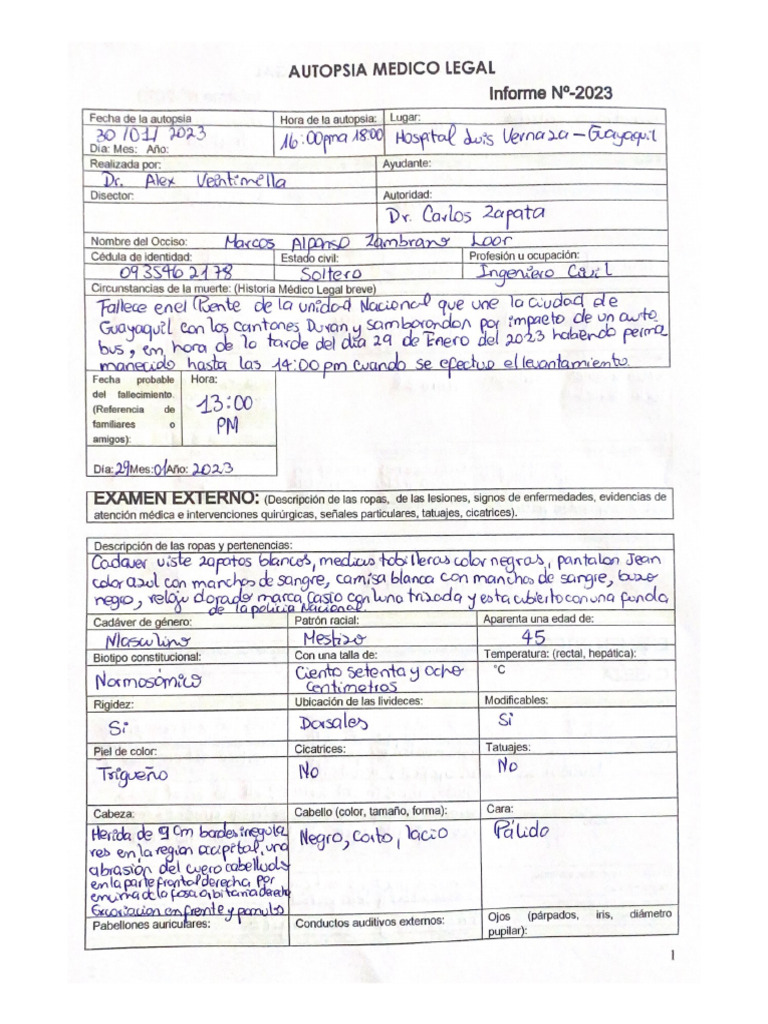 AUTOPSIA MEDICO LEGAL
Informe Nº-2023
Fecha de la autopsia
30/01/2023
Dia: Mes: Año:
Hora de la autopsia:
16:00pm a 18:00
Lugar:
Hospital Luis Vernaza - Guayaquil
Realizada por:
Dr. Alex Veintimella
Ayudante:
Disector:
Autoridad:
Dr. Carlos Zapata
Nombre del Occiso: Marcos Alponso Zambrano Loor
Cédula de identidad:
0935462178
Estado civil:
Soltero
Profesión u ocupación:
Ingeniero Civil
Circunstancias de la muerte: (Historia Médico Legal breve)
Fallece en el Puente de la unidad Nacional que une la ciudad de
Guayaquil con los cantones Duran y samborondon por impacto de un auto
bus, en hora de la tarde del día 29 de Enero del 2023 habiendo perma
manecido hasta las 14:00 pm cuando se efectuo el levantamiento.
Fecha probable
del fallecimiento.
(Referencia de
familiares o
amigos):
Hora:
13:00
PM
Día: 29 Mes: 01 Año: 2023
EXAMEN EXTERNO: (Descripción de las ropas, de las lesiones, signos de enfermedades, evidencias de
atención médica e intervenciones quirúrgicas, señales particulares, tatuajes, cicatrices).
Descripción de las ropas y pertenencias:
Cadaver viste zapatos blancos, medias tobilleras color negras, pantalon Jean
color azul con manchas de sangre, camisa blanca con manchas de sangre, buzo
negro, reloj dorado marca Casio con luna trizada y esta cubierto con una funda
de la policia Nacional.
Cadáver de género:
Masculino
Patrón racial:
Mestizo
Aparenta una edad de:
45
Biotipo constitucional:
Normosómico
Con una talla de:
Ciento setenta y ocho
centimetros
Temperatura: (rectal, hepática):
°C
Rigidez:
Si
Ubicación de las livideces:
Dorsales
Modificables:
Si
Piel de color:
Trigueño
Cicatrices:
No
Tatuajes:
No
Cabeza:
Herida de 9 cm bordes irregula
res en la región occipital, una
abrasión del cuero cabelludo
en la parte frontal derecha por
encima de la fosa orbitaria derecha
Excoriacion en frente y pomulos
Cabello (color, tamaño, forma):
Negro, corto, lacio
Cara:
Pálido
Pabellones auriculares:
Conductos auditivos externos:
Ojos (párpados, iris, diámetro
pupilar):
1